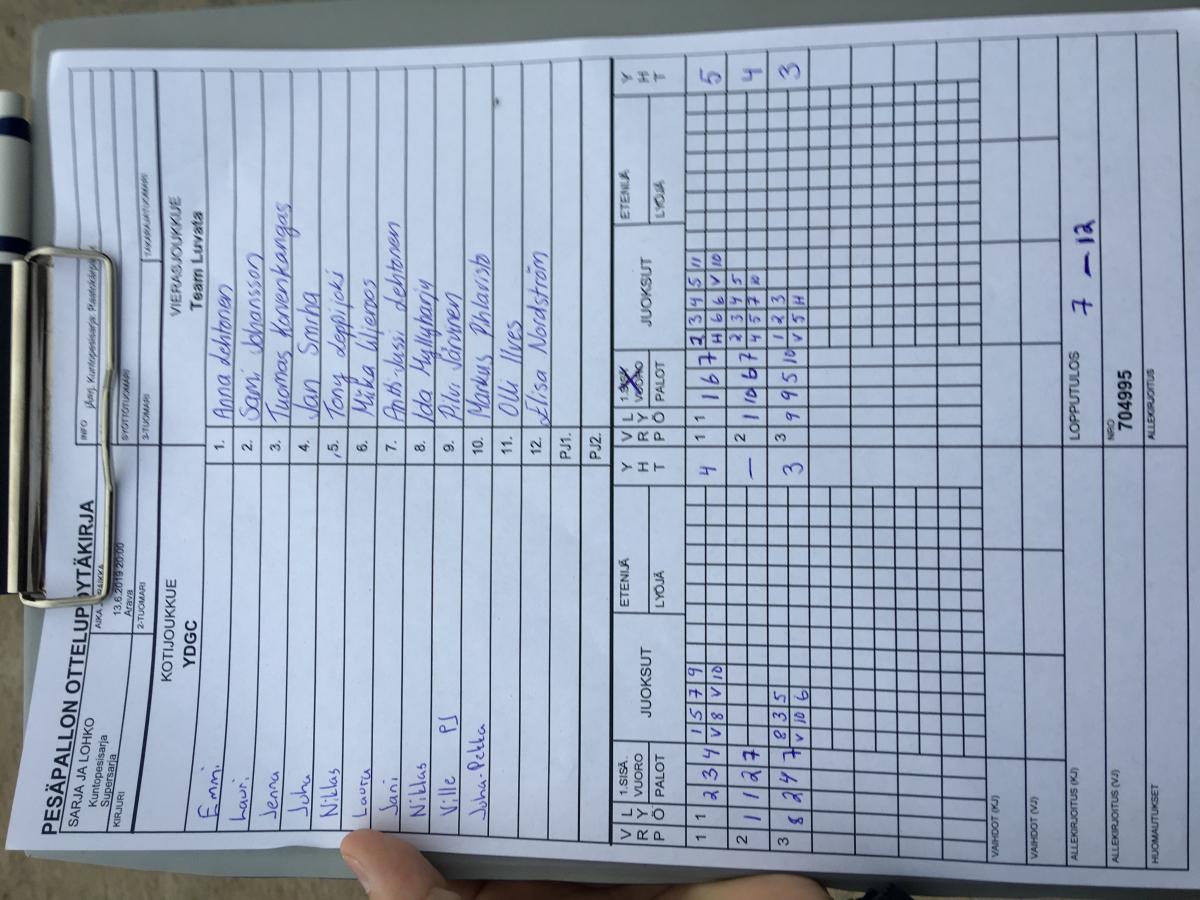 PESÄPALLON OTTELUPÖYTÄKIRJA
SARJA JA LOHKO
Kuntopesisarja
Supersarja
AIKA JA PAIKKA
13.6.2019 20:00
Arava
INFO
KIRJURI
2-TUOMARI
SYÖTTÖTUOMARI
3-TUOMARI
TAKARAJATUOMARI
KOTIJOUKKUE
YDGC
VIERASJOUKKUE
Team Luvata
Emmi 1. Anna Lehtonen
Lauri 2. Sami Johansson
Jenna 3. Tuomas Korvenkangas
Juha 4. Jan Smiha
Niklas 5. Tony Leppijoki
Lauru 6. Miika Liljeroos
Jani 7. Antti-Jussi Lehtonen
Niklas 8. Iida Myllyharju
Ville PJ 9. Pilvi Järvinen
Juha-Pekka 10. Markus Pihlavisto
11. Olli Ilves
12. Elisa Nordström
PJ1.
PJ2.
V R P L Y Ö 1.SISÄ. VUORO PALOT JUOKSUT ETENIJÄ LYÖJÄ Y H T V R P L Y Ö VUORO PALOT JUOKSUT ETENIJÄ LYÖJÄ Y H T
1 1 2 3 4 1 5 7 9 4 1 1 1 6 7 2 3 4 5 11 5
V 8 V 10 H 6 6 V 10
2 1 1 2 7 — 2 1 10 6 7 2 3 4 5 4
4 5 7 10
3 8 2 4 7 8 3 5 3 3 9 9 5 10 1 2 3 3
V 10 6 V 5 H
VAIHDOT (KJ)
VAIHDOT (VJ)
ALLEKIRJOITUS (KJ)
LOPPUTULOS 7 – 12
ALLEKIRJOITUS (VJ)
NRO
704995
HUOMAUTUKSET
ALLEKIRJOITUS